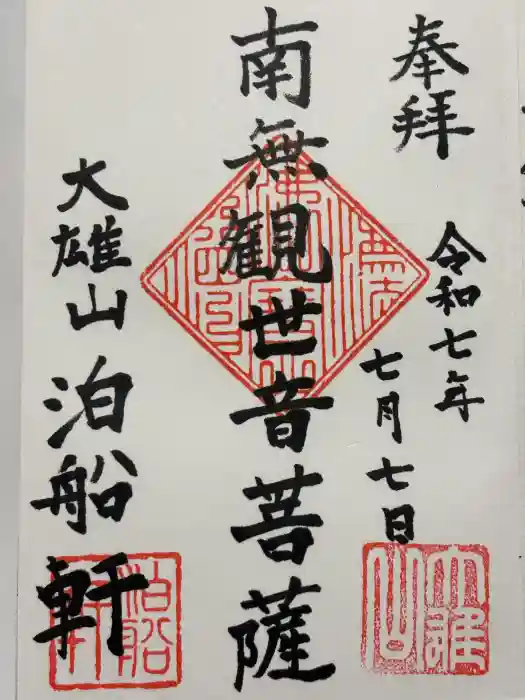 奉拝
令和七年
七月七日
南無観世音菩薩
大雄山泊船軒
大雄山
泊船軒